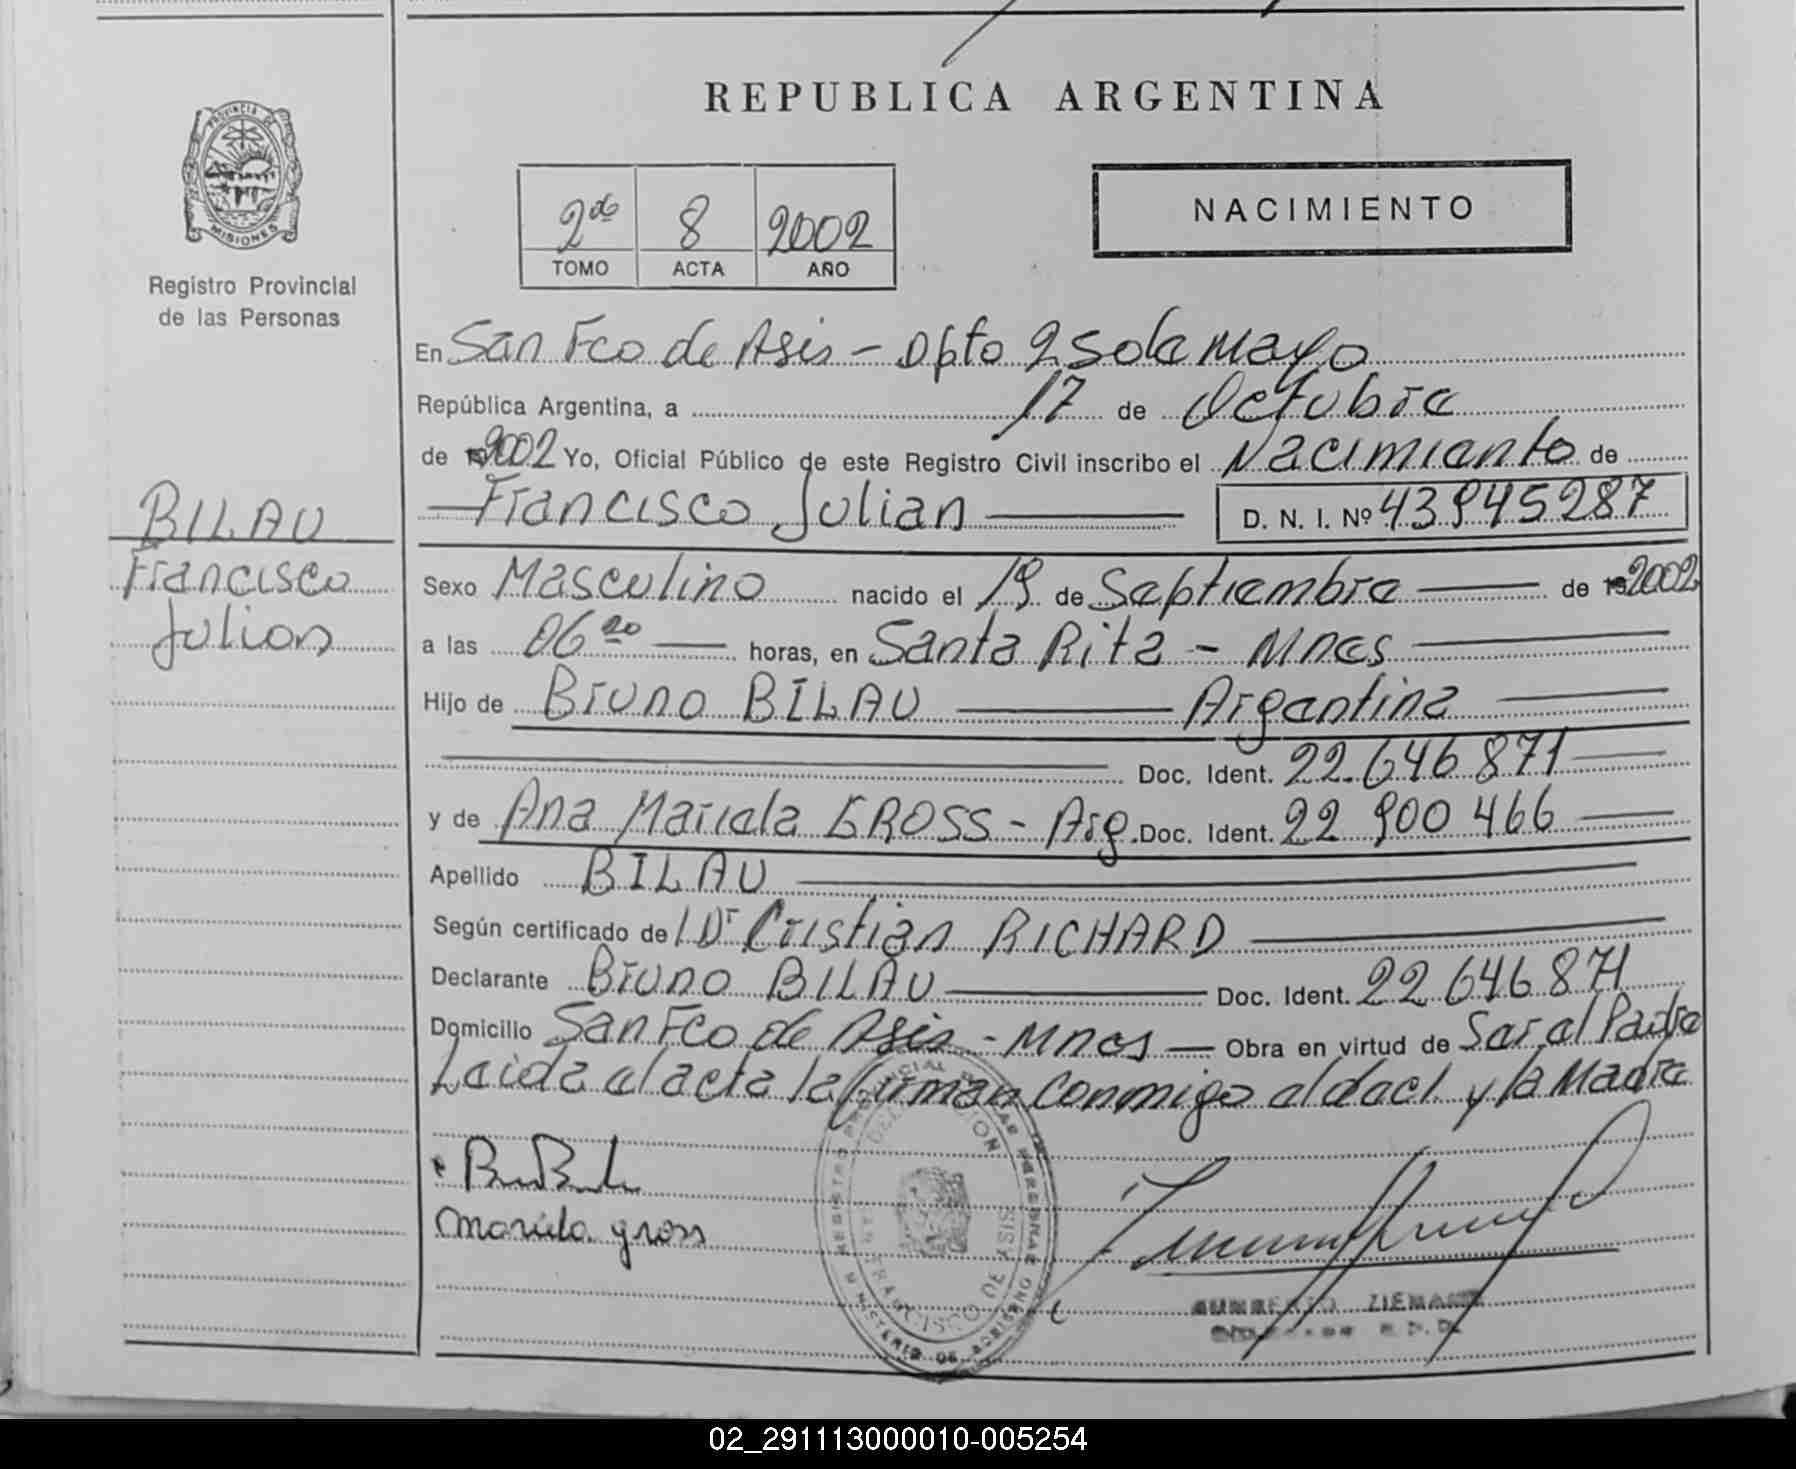 REPUBLICA ARGENTINA
PROVINCIA DE MISIONES
Registro Provincial
de las Personas
2do 8 2002
TOMO ACTA AÑO
NACIMIENTO
En San Fco de Asis - Dpto 25 de Mayo
República Argentina, a 17 de Octubre
de 2002 Yo, Oficial Público de este Registro Civil inscribo el Nacimiento de
Francisco Julian D. N. I. Nº 43945287
BILAU
Francisco
Julian
Sexo Masculino nacido el 19 de Septiembre de 2002
a las 06 20 horas, en Santa Rita - Mnes
Hijo de Bruno BILAU Argentina
Doc. Ident. 22.646 871
y de Ana Mariela GROSS - Arg. Doc. Ident. 22 900 466
Apellido BILAU
Según certificado de Dr Cristian RICHARD
Declarante Bruno BILAU Doc. Ident. 22 646 871
Domicilio San Fco de Asis - Mnes Obra en virtud de Ser el Padre
Leida el acta la firman conmigo el decl. y la Madre
Mariela gross
REGISTRO PROVINCIAL DE LAS PERSONAS
DELEGACION
FRANCISCO DE ASIS
MINISTERIO DE GOBIERNO
02_291113000010-005254